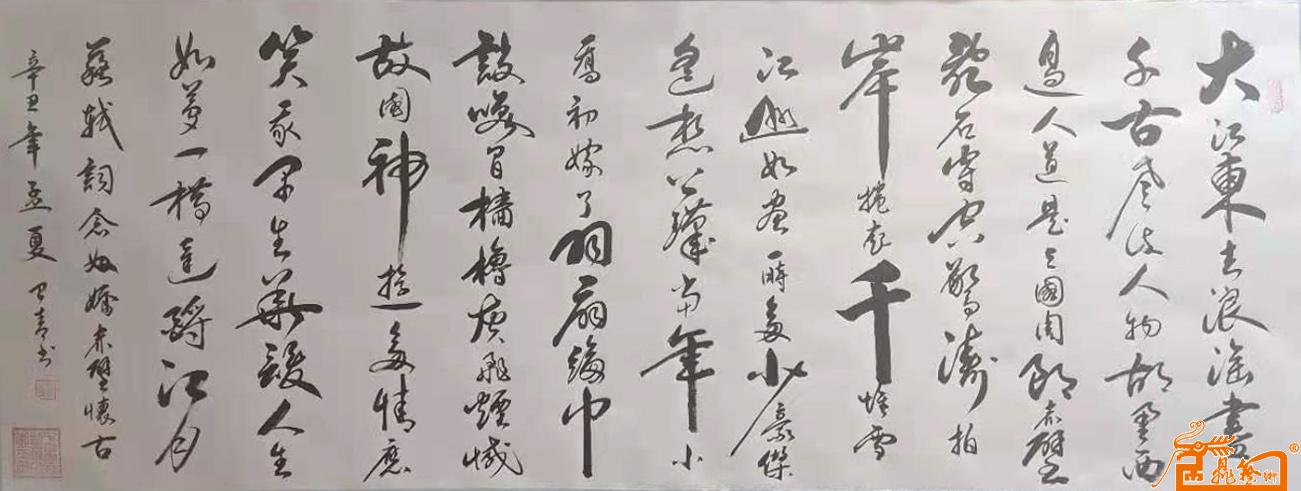 大江東去浪淘盡
千古風流人物故壘西
邊人道是三國周郎赤壁
亂石穿空驚濤拍
岸捲起千堆雪
江山如畫一時多少豪傑
遙想公瑾當年小
喬初嫁了羽扇綸巾
談笑間檣櫓灰飛煙滅
故國神遊多情應
笑我早生華髮人生
如夢一樽還酹江月
蘇軾詞念奴嬌赤壁懷古
辛丑年孟夏青書